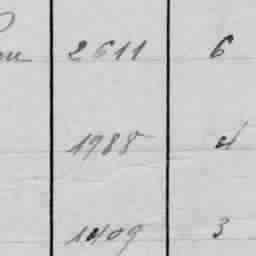 2611 6
1988 4
1409 3